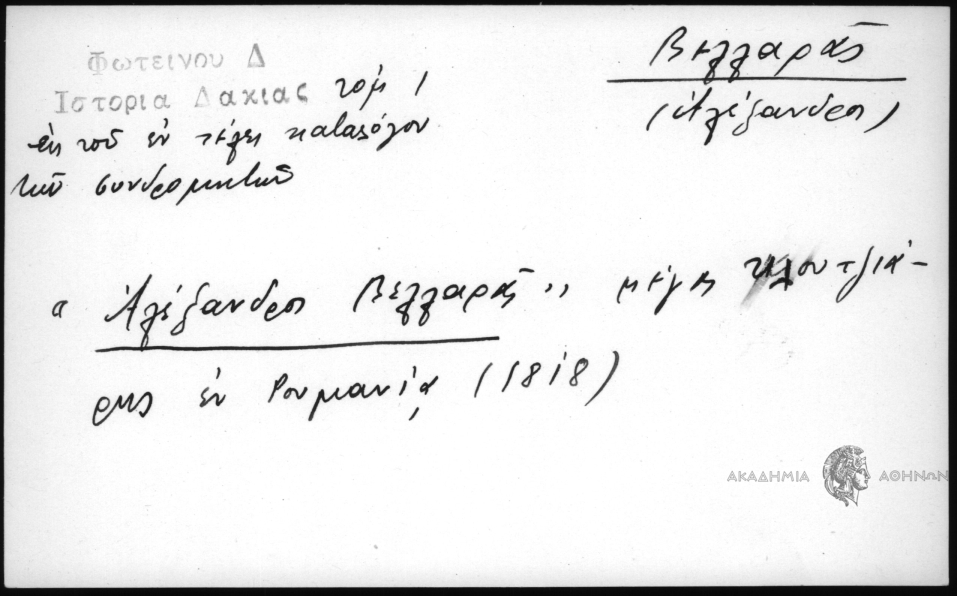 Φωτεινου Δ
Ιστορια Δακιας τομ 1
ἐκ τοῦ ἐν τέλει καταλόγου
τῶν συνδρομητῶν
Βελλαρᾶς
(Ἀλέξανδρος)
" Ἀλέξανδρος Βελλαρᾶς " μέγας κλουτζιά-
ρης ἐν Ρουμανίᾳ (1818)
ΑΚΑΔΗΜΙΑ ΑΘΗΝΩΝ